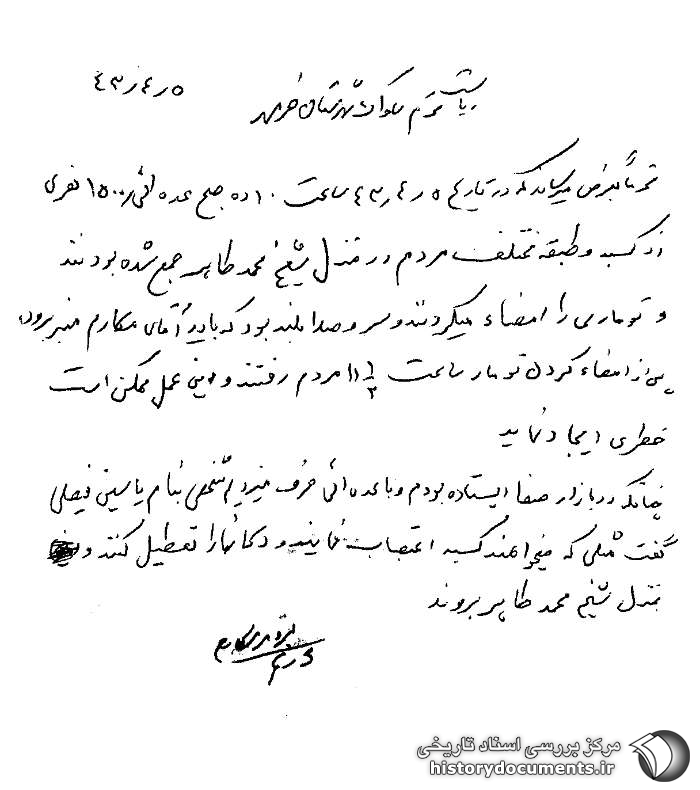 ۴۳ر۴ر۵
ریاست محترم ساواک شهرستان خرمشهر
محترماً بعرض میرساند که در تاریخ ۵ ر ۴ ر ۴۳ ساعت ۱۰ ده صبح عده ائی ۱۵۰۰ نفری
از کسبه و طبقه مختلف مردم در منزل شیخ محمد طاهر جمع شده بودند
و توماری را امضاء میکردند و سر و صدا بلند بود که باید آقای مکارم منبر برود.
پس از امضاء کردن تومار ساعت ۱۱ ۱/۲ مردم رفتند و این عمل ممکن است
خطری ایجاد نماید
چنانکه در بازار صفا ایستاده بودم و با عده ائی حرف میزدم شخصی بنام یاسین فیصلی
گفت مثلی که میخواهند کسبه اعتصاب نمایند و دکانها را تعطیل کنند و
بمنزل شیخ محمد طاهر بروند
مرکز بررسی اسناد تاریخی
historydocuments.ir